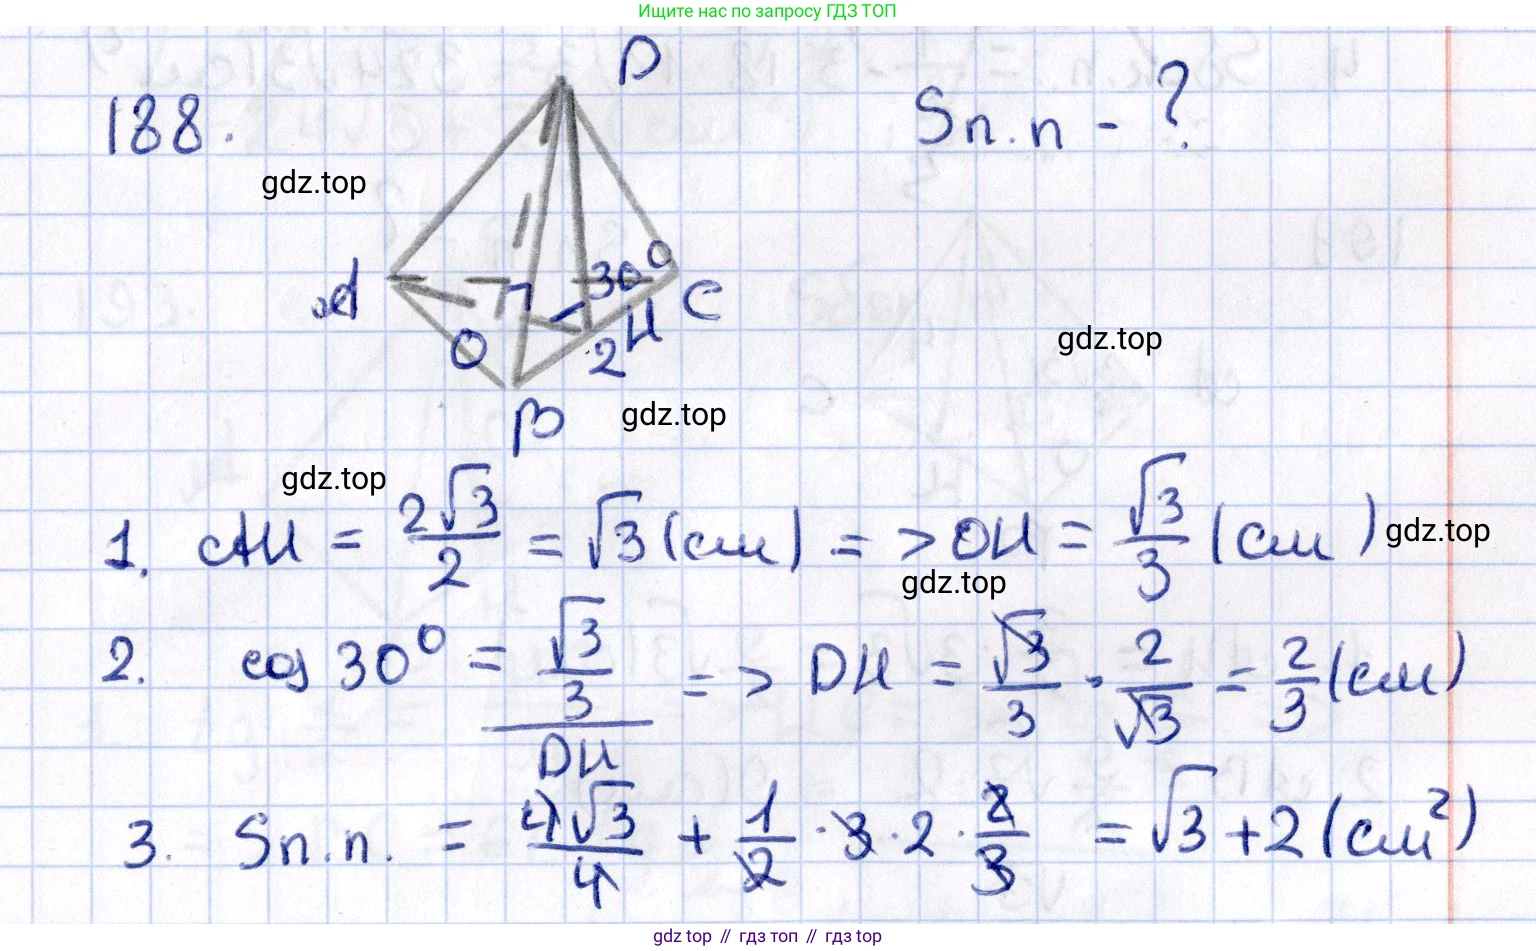 Ищите нас по запросу ГДЗ ТОП
188.
D
Sп.п - ?
gdz.top
A
30°
C
O
H
2
gdz.top
B
gdz.top
gdz.top
1. AH = 2√3/2 = √3 (см) => OH = √3/3 (см)
gdz.top
gdz.top
2. cos 30° = (√3/3)/DH => DH = √3/3 · 2/√3 = 2/3 (см)
3. Sп.п. = 4√3/4 + 1/2 · 3 · 2 · 2/3 = √3 + 2 (см²)
gdz.top // гдз топ // гдз.top